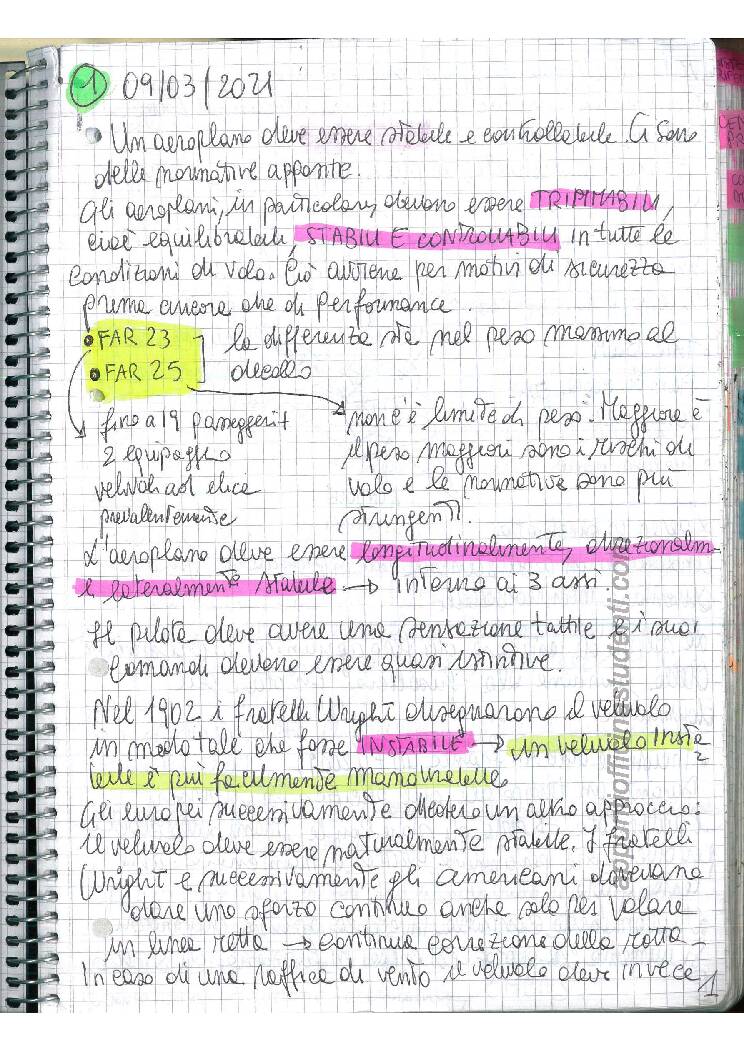 1 09/03/2021
Un aeroplano deve essere stabile e controllabile. Ci sono
delle normative apposite.
Gli aeroplani, in particolare, devono essere TRIMMABILI,
cioè equilibrabili, STABILI E CONTROLLABILI in tutte le
condizioni di volo. Ciò avviene per motivi di sicurezza
prima ancora che di performance.
FAR 23 la differenza sta nel peso massimo al
FAR 25 decollo
fino a 19 passeggeri + non c'è limite di peso. Maggiore è
2 equipaggio il peso maggiori sono i rischi di
velivoli ad elica volo e le normative sono più
prevalentemente stringenti.
L'aeroplano deve essere longitudinalmente, direzionalm-
e lateralmente stabile → intorno ai 3 assi.
Il pilota deve avere una sensazione tattile e i suoi
comandi devono essere quasi istintive.
Nel 1902 i fratelli Wright disegnarono il velivolo
in modo tale che fosse INSTABILE → un velivolo insta=
bile è più facilmente manovrabile.
Gli europei successivamente diedero un altro approccio:
il velivolo deve essere naturalmente stabile. I fratelli
Wright e successivamente gli americani dovevano
dare uno sforzo continuo anche solo per volare
in linea retta → continua correzione della rotta.
In caso di una raffica di vento il velivolo deve invece
1